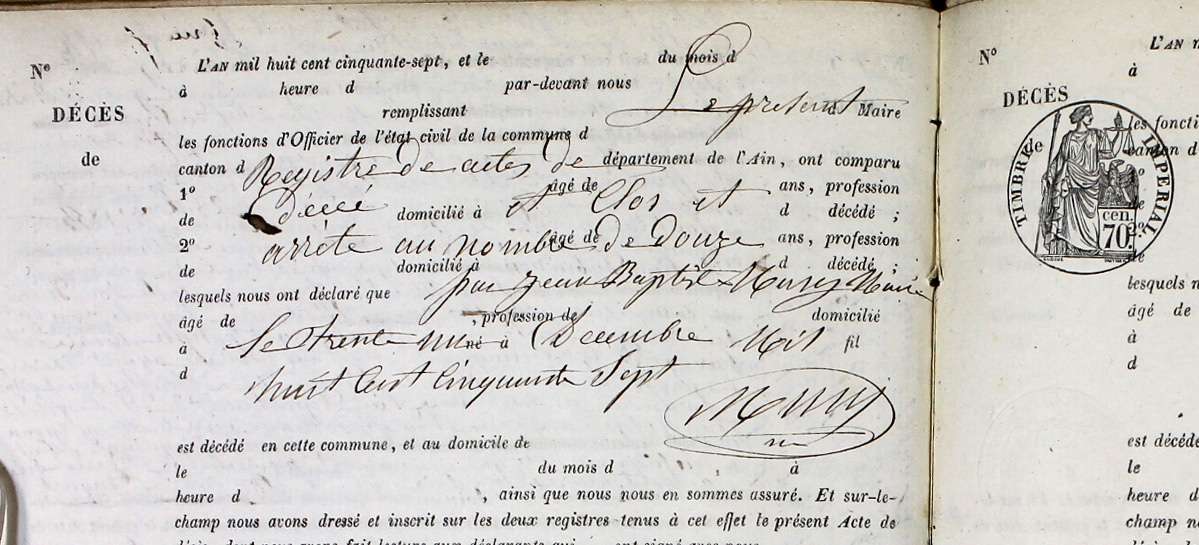 L'AN mil huit cent cinquante-sept, et le du mois d
N° à heure d par-devant nous
Le présent
DÉCÈS remplissant d Maire
les fonctions d'Officier de l'état civil de la commune d
de canton d département de l'Ain, ont comparu
Registre de actes de
1° âgé de ans, profession
de domicilié à d décédé ;
décé et Clos et
2° âgé de ans, profession
arrêté au nombre de douze
de domicilié à d décédé ;
lesquels nous ont déclaré que
par Jean Baptiste Maire
âgé de , profession de domicilié
à né à fil
le trente un Décembre Mil
d
huit Cent Cinquante Sept
est décédé en cette commune, et au domicile de
le du mois d , à
heure d , ainsi que nous nous en sommes assuré. Et sur-le-
champ nous avons dressé et inscrit sur les deux registres tenus à cet effet le présent Acte de
L'AN
N° à
DÉCÈS
de
les foncti
canton d
TIMBRE IMPERIAL
70 cen.
2°
de
lesquels n
âgé de
à
d
est décédé
le
heure d
champ n